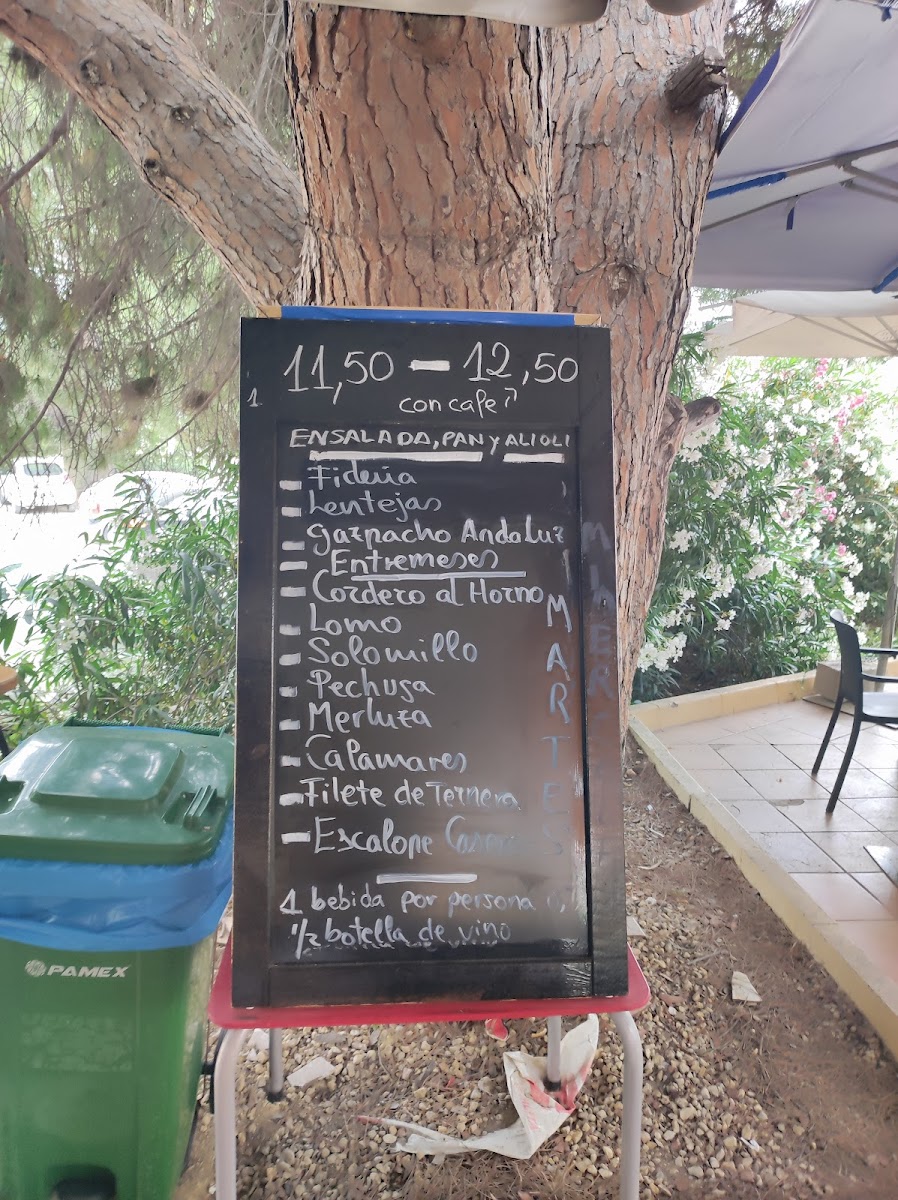 11,50 - 12,50
con cafe
ENSALADA, PAN Y ALIOLI
- Fideua
- Lentejas
- gazpacho Andaluz
- Entremeses
- Cordero al Horno
- Lomo
- Solomillo
- Pechuga
- Merluza
- Calamares
- Filete de Ternera
- Escalope
1 bebida por persona
1/2 botella de vino
MARTES
PAMEX